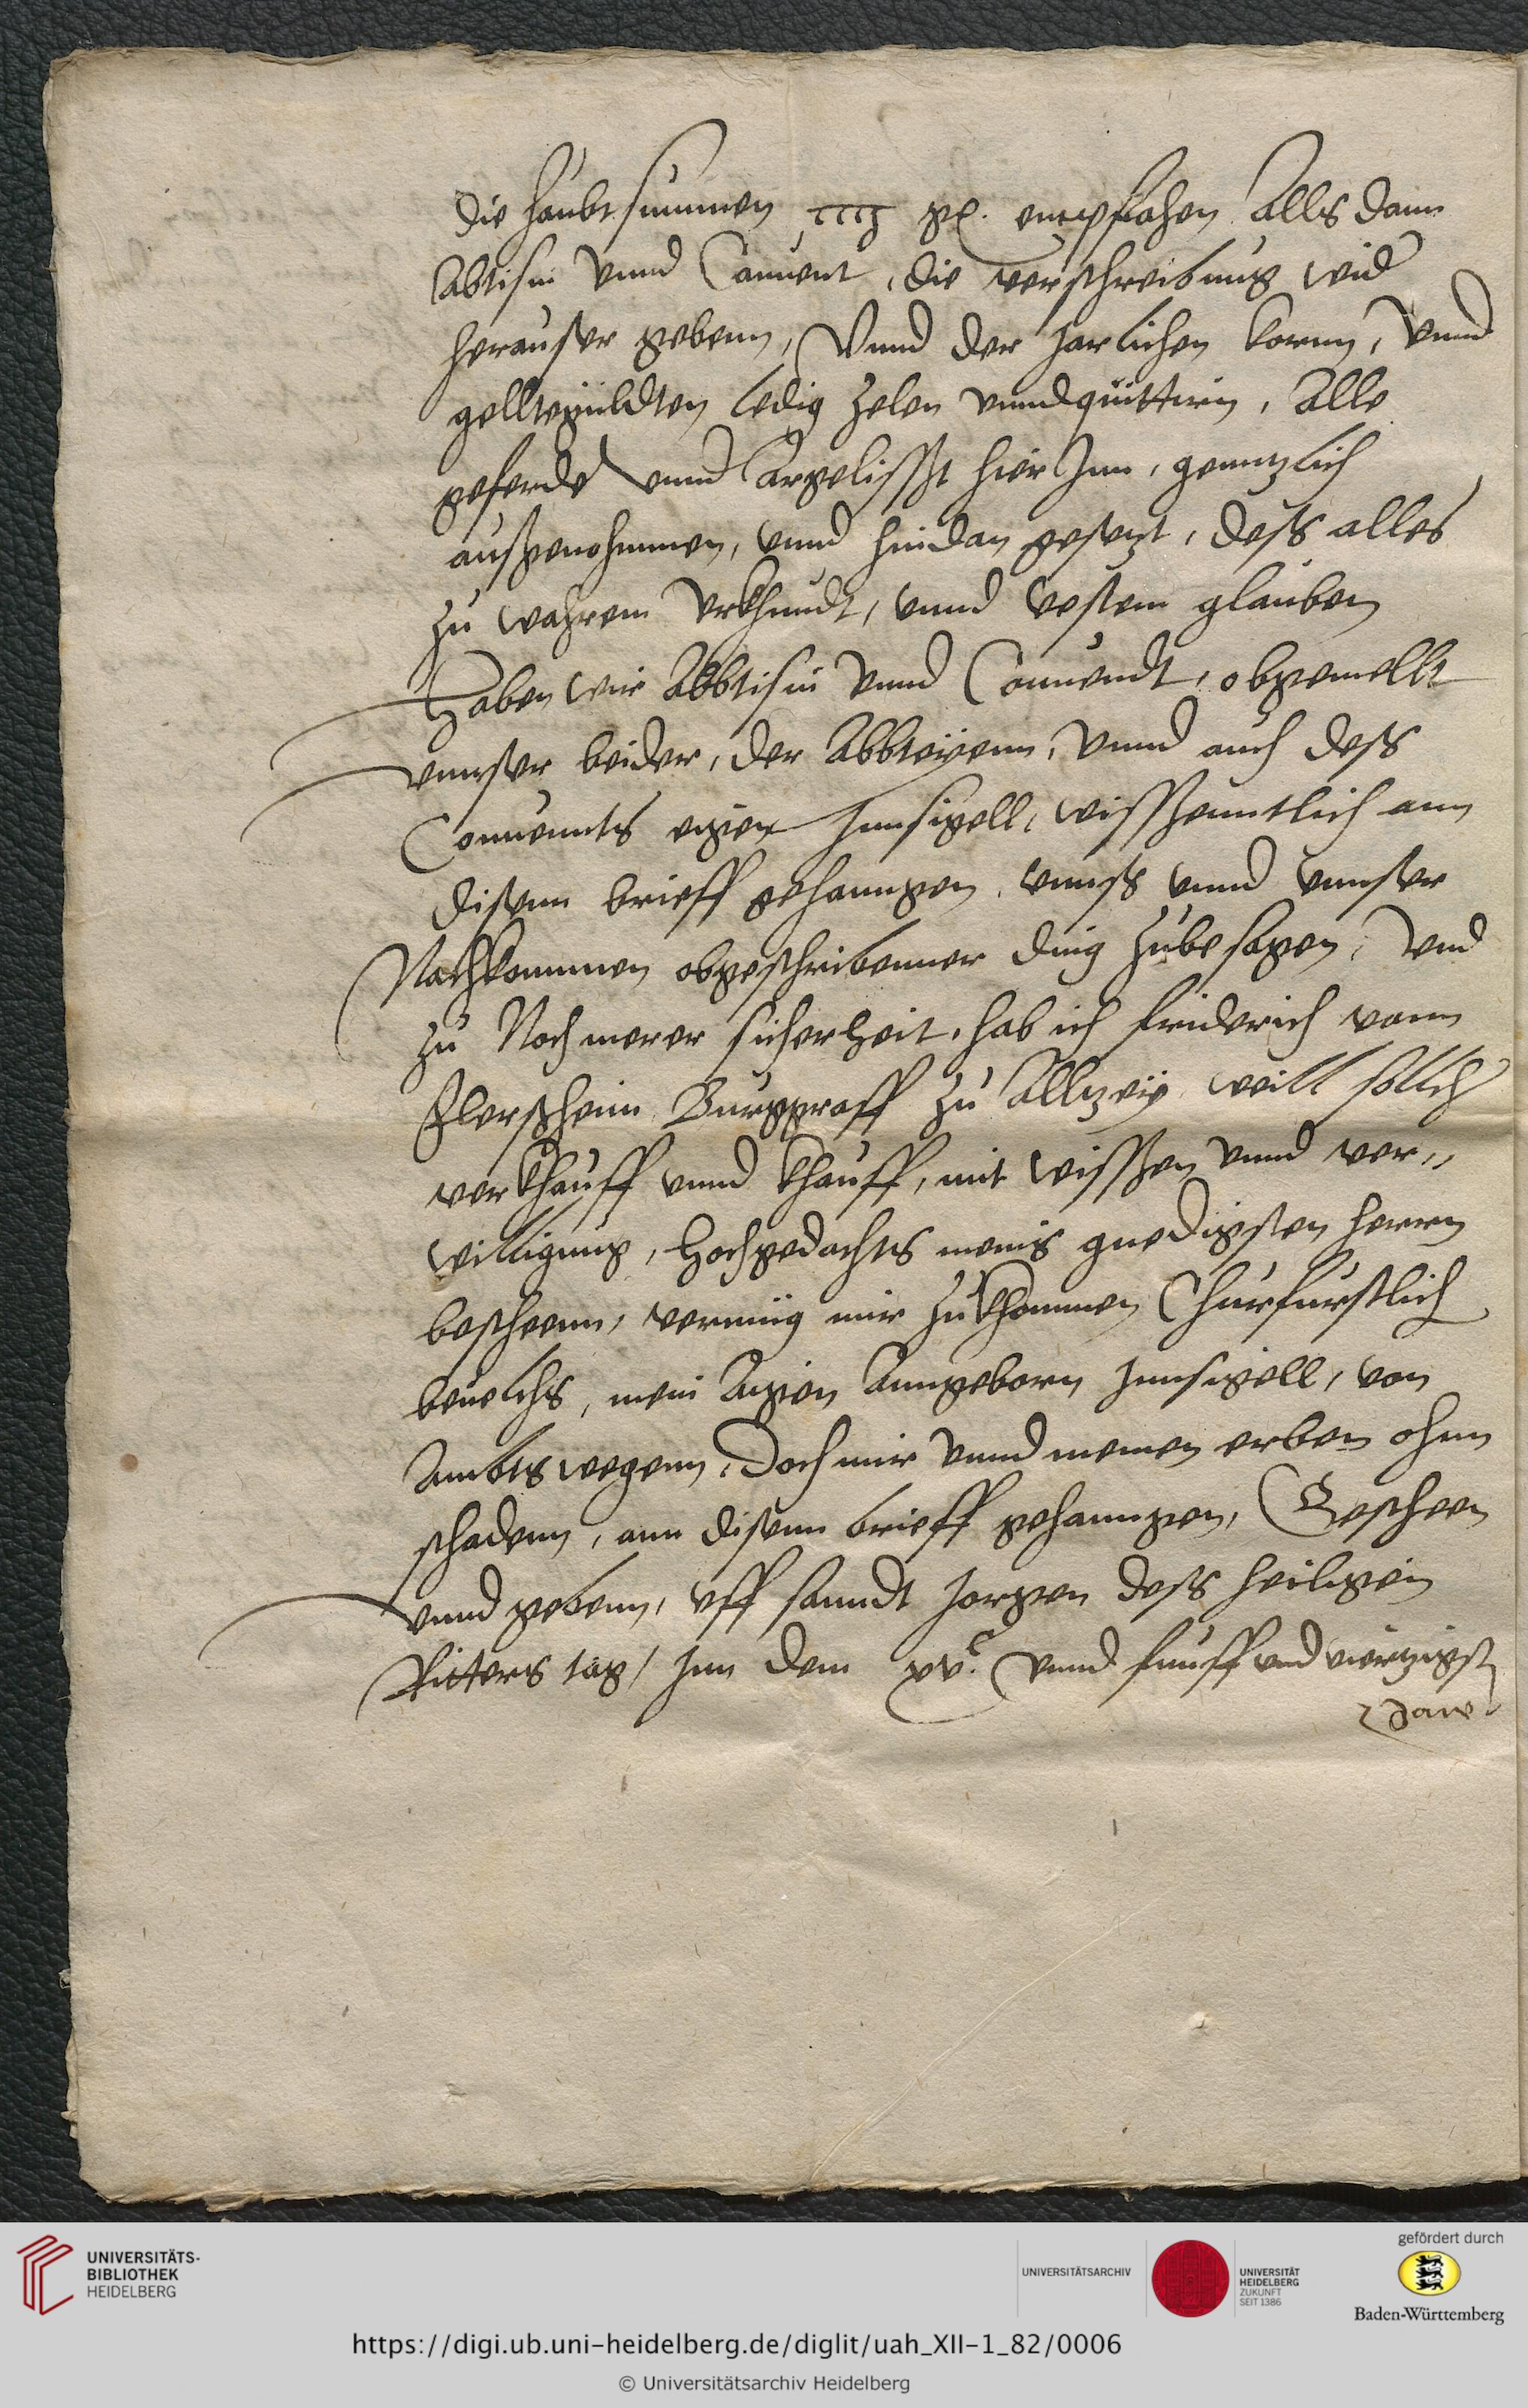 die haubt summen, cccc gl. empfahen Alls dann
Abtisin vnnd Conuent, die verschreibung wid
herausser gebenn, Vnnd der Jarlichen kornn, vnnd
gelltgüldten ledig zelen vnnd quittirn, Alle
geferde vnnd Argelisst hier Inn, genntzlich
aussgenohmmen, vnnd hindan gesetzt, dess alles
zu wahrem vrkhundt, vnnd vestem glauben
Haben wir Abbtisin vnnd Conuendt, obgemellt
vnnser beider, der Abbteyenn, vnnd auch dess
Conuennts eigen Innsigell, wissenntlich ann
disenn brieff gehanngen, vnnss vnnd vnnser
Nachkommen obgeschribenner ding zubesagen, Vnd
zu Noch merer sicherheit, hab ich friderich vonn
Flerssheim Burggraff zu Alltzey, weill sollch
verkhauff vnnd khauff, mit wissen vnnd ver-
willigung, hochgedachts meins gnedigsten herrn
bescheenn, vermüg mir zukhommen Churfurstlich
beuelchs, mein Aigen Anngeborn Innsigell, von
Ambts wegenn, Doch mir vnnd meinen erben ohnn
schadenn, ann disenn brieff gehanngen, Gescheen
vnnd gebenn, vff sanndt Jorgen dess heiligen
Ritters tag, Inn dem xvc. vnnd funff vnd viertzigst
Jare
UNIVERSITÄTS-
BIBLIOTHEK
HEIDELBERG
UNIVERSITÄTSARCHIV
UNIVERSITÄT
HEIDELBERG
ZUKUNFT
SEIT 1386
gefördert durch
Baden-Württemberg
https://digi.ub.uni-heidelberg.de/diglit/uah_XII-1_82/0006
© Universitätsarchiv Heidelberg